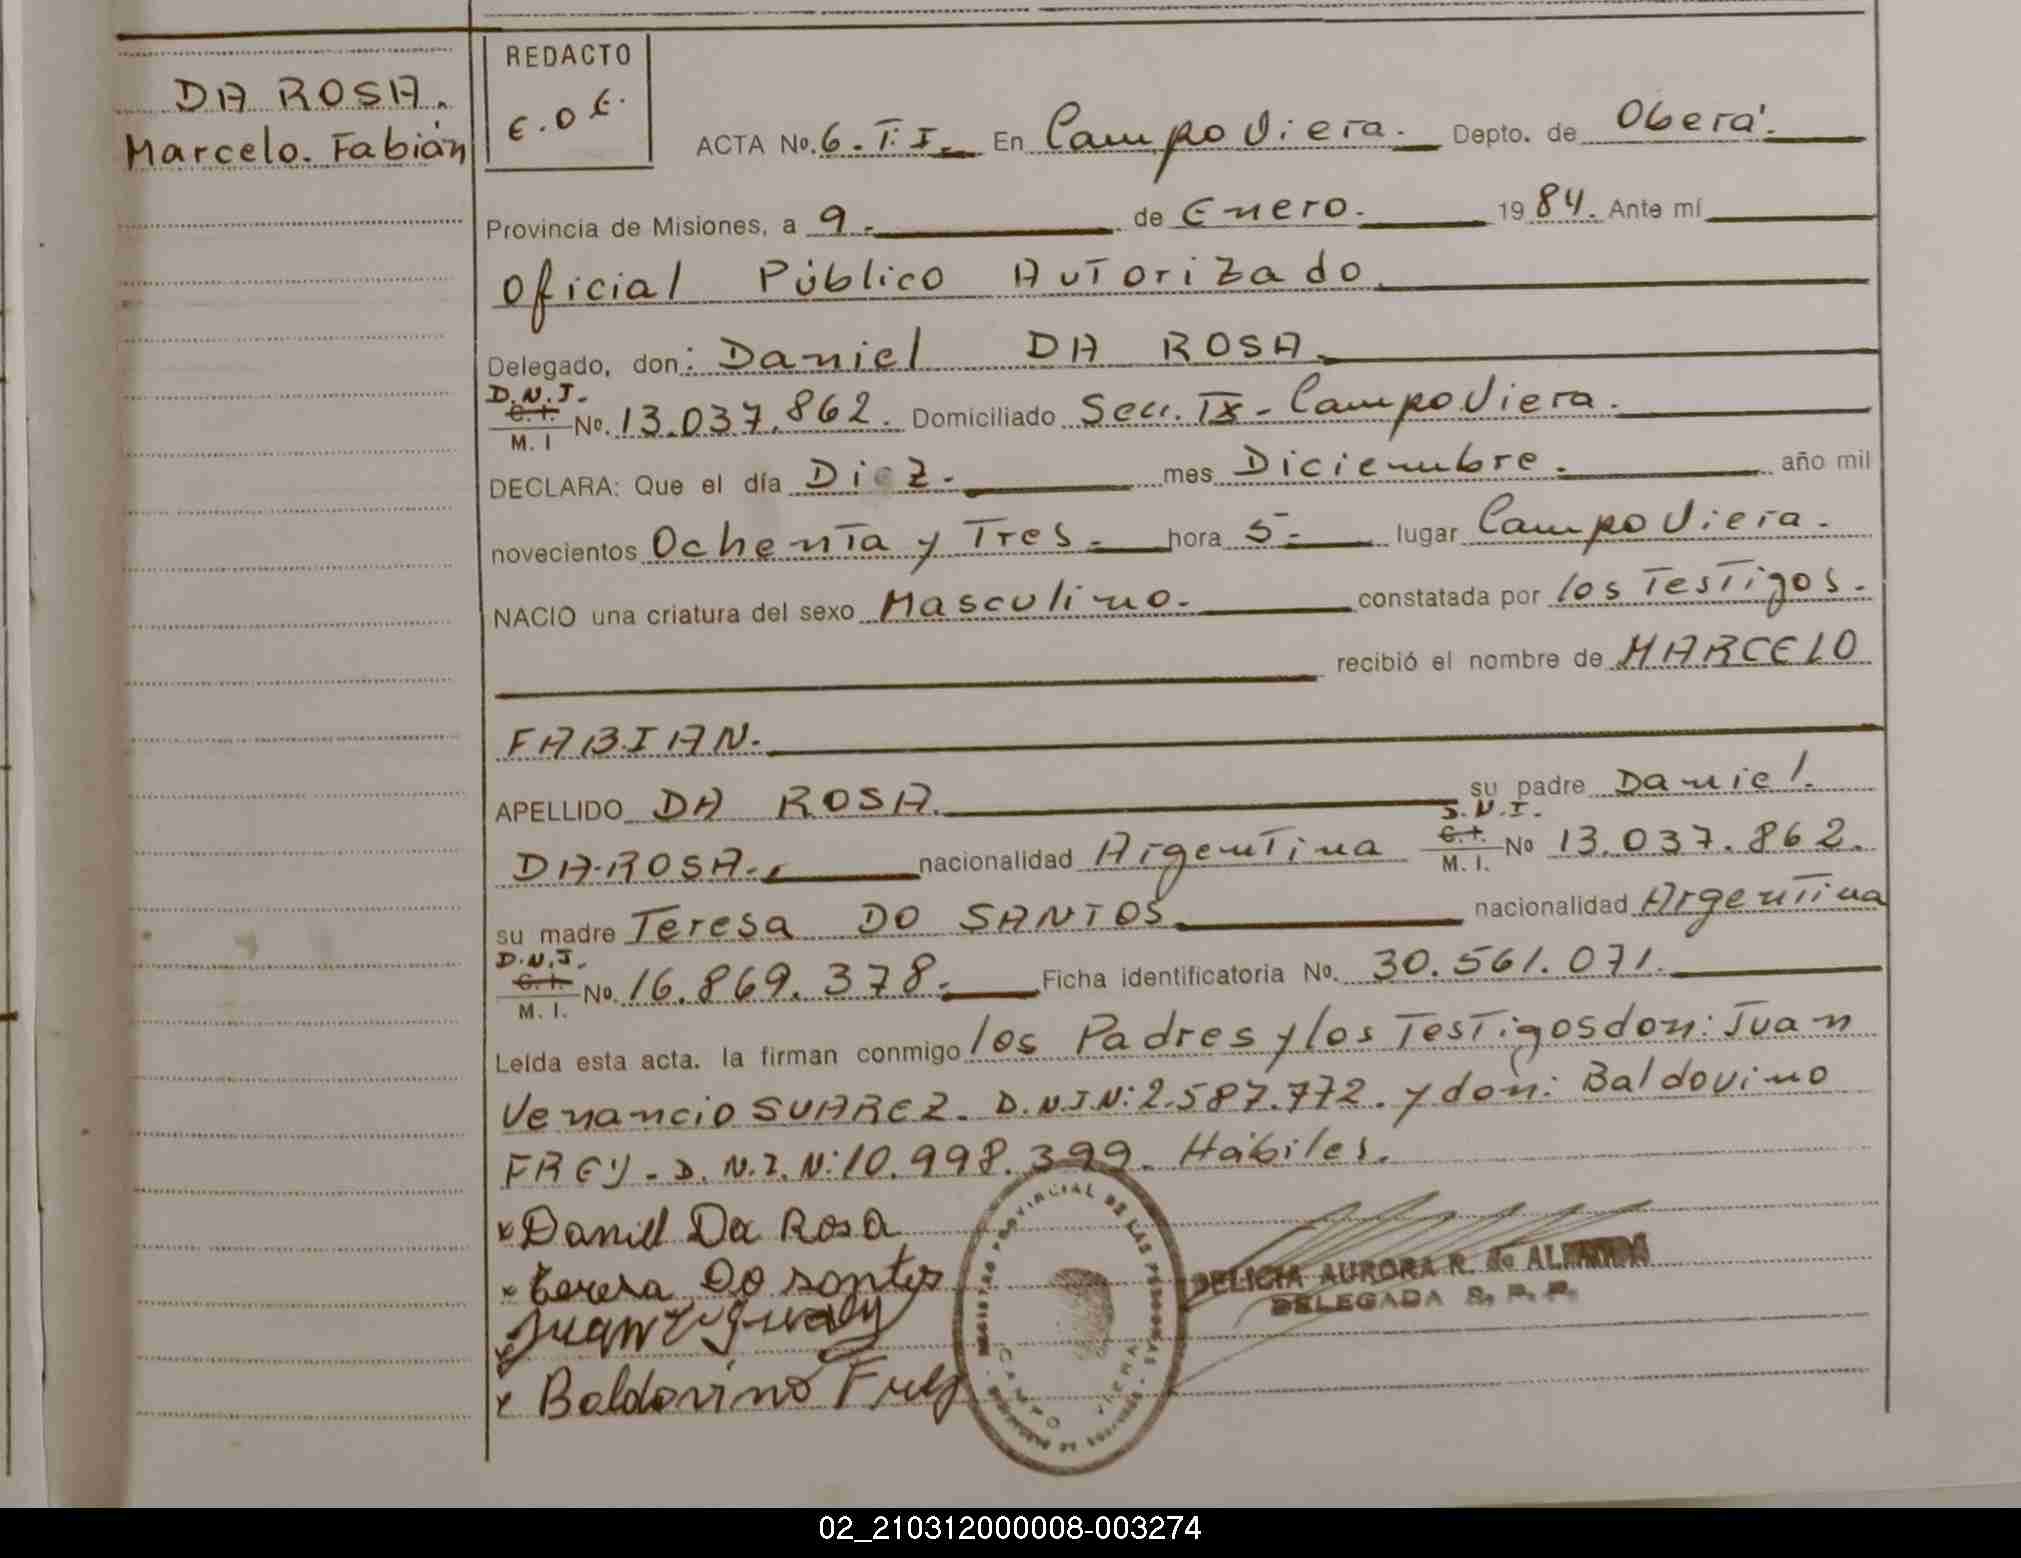 DA ROSA.
Marcelo. Fabián
REDACTO
E.O.E.
ACTA No. 6. T. I. En Campo Viera. Depto. de Oberá.
Provincia de Misiones, a 9. de Enero. 19 84. Ante mí
Oficial Público Autorizado
Delegado, don: Daniel DA ROSA
D.N.I.
C.I.
M. I No. 13.037.862. Domiciliado Secc. IX - Campo Viera.
DECLARA: Que el día Diez. mes Diciembre. año mil
novecientos Ochenta y Tres. hora 5. lugar Campo Viera.
NACIO una criatura del sexo Masculino. constatada por los Testigos.
recibió el nombre de MARCELO
FABIAN.
APELLIDO DA ROSA. su padre Daniel.
D.N.I.
C.I.
DA ROSA. nacionalidad Argentina M. I. No 13.037.862.
su madre Teresa DO SANTOS nacionalidad Argentina
D.N.I.
C.I.
M. I. No. 16.869.378. Ficha identificatoria No. 30.561.071.
Leída esta acta. la firman conmigo los Padres y los Testigos don: Juan
Venancio SUAREZ. D.N.I N: 2.587.772. y don: Baldovino
FREY - D. N. I. N: 10.998.399. Hábiles.
x Daniel Da Rosa
x Teresa Do santos
x Baldovino Frey
REGISTRO PROVINCIAL DE LAS PERSONAS
CAMPO VIERA
DELICIA AURORA R. de
DELEGADA R. P. P.
02_210312000008-003274